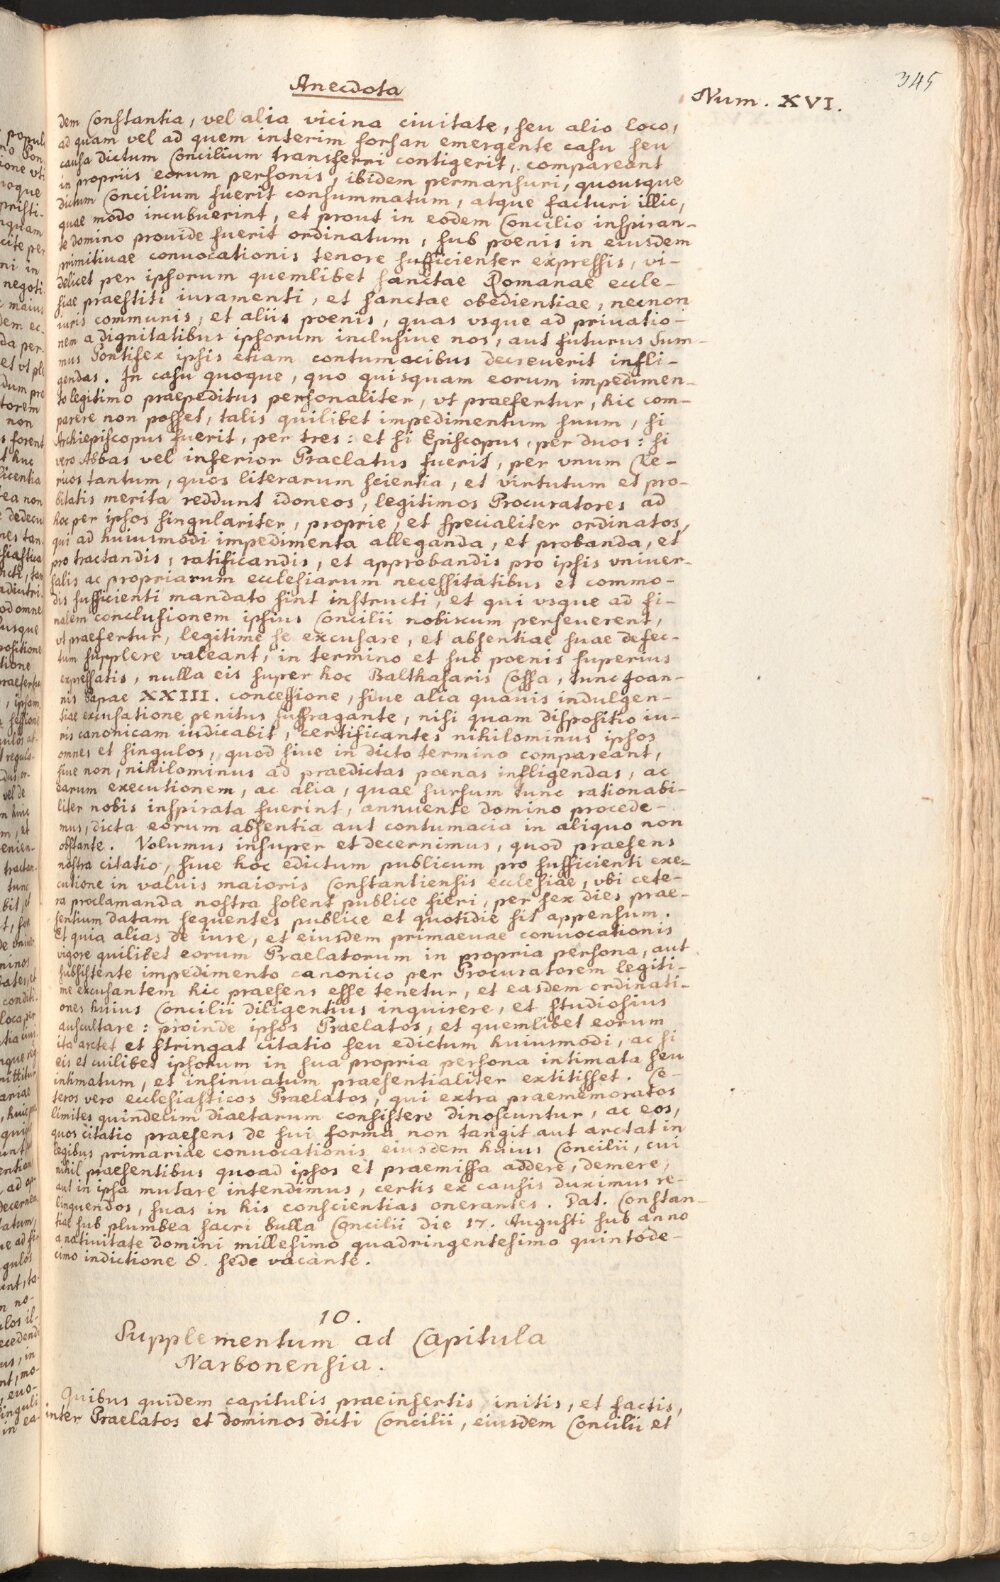 345
Anecdota
Num. XVI.
dem Constantia, vel alia vicina ciuitate, seu alio loco,
ad quam vel ad quem interim forsan emergente casu seu
causa dictum Concilium transferri contigerit, compareant
in propriis eorum personis, ibidem permansuri, quousque
dictum Concilium fuerit consummatum, atque facturi illic,
quae modo incubuerint, et prout in eodem Concilio inspiran-
te domino prouide fuerit ordinatum, sub poenis in eiusdem
primitiuae conuocationis tenore sufficienter expressis, vi-
delicet per ipsorum quemlibet sanctae Romanae eccle-
siae praestiti iuramenti, et sanctae obedientiae, necnon
iuris communis, et aliis poenis, quas vsque ad priuatio-
nem a dignitatibus ipsorum inclusiue nos, aut futurus Sum-
mus Pontifex ipsis etiam contumacibus decreuerit infli-
gendas. In casu quoque, quo quisquam eorum impedimen-
to legitimo praepeditus personaliter, vt praefertur, hic com-
parere non posset, talis quilibet impedimentum suum, si
Archiepiscopus fuerit, per tres: et si Episcopus, per duos: si
vero Abbas vel inferior Praelatus fuerit, per vnum Cle-
ricos tantum, quos literarum scientia, et virtutum et pro-
bitatis merita reddunt idoneos, legitimos Procuratores ad
hoc per ipsos singulariter, proprie, et specialiter ordinatos,
qui ad huiusmodi impedimenta alleganda, et probanda, et
pro tractandis, ratificandis, et approbandis pro ipsis vniuer-
salis ac propriarum ecclesiarum necessitatibus et commo-
dis sufficienti mandato sint instructi, et qui vsque ad fi-
nalem conclusionem ipsius Concilii nobiscum perseuerent,
vt praefertur, legitime se excusare, et absentiae suae defec-
tum supplere valeant, in termino et sub poenis superius
expressatis, nulla eis super hoc Balthasaris Cossa, tunc Joan-
nis Papae XXIII. concessione, siue alia quauis indulgen-
tiae excusatione penitus suffragante, nisi quam dispositio iu-
ris canonicam iudicabit, certificantes nihilominus ipsos
omnes et singulos, quod siue in dicto termino compareant,
siue non, nihilominus ad praedictas poenas infligendas, ac
earum executionem, ac alia, quae sursum tunc rationabi-
liter nobis inspirata fuerint, annuente domino procede-
mus, dicta eorum absentia aut contumacia in aliquo non
obstante. Volumus insuper et decernimus, quod praesens
nostra citatio, siue hoc edictum publicum pro sufficienti exe-
cutione in valuis maioris Constantiensis ecclesiae, vbi cete-
ra proclamanda nostra solent publice fieri, per sex dies prae-
sentium datam sequentes publice et quotidie sit appensum.
Et quia alias de iure, et eiusdem primaeuae conuocationis
vigore quilibet eorum Praelatorum in propria persona, aut
subsistente impedimento canonico per Procuratorem legiti-
me excusantem hic praesens esse tenetur, et easdem ordinati-
ones huius Concilii diligentius inquirere, et studiosius
auscultare: proinde ipsos Praelatos, et quemlibet eorum
ita arctet et stringat citatio seu edictum huiusmodi, ac si
eis et cuilibet ipsorum in sua propria persona intimata seu
intimatum, et insinuatum praesentialiter extitisset. Ce-
teros vero ecclesiasticos Praelatos, qui extra praememoratos
limites quindecim diaetarum consistere dinoscuntur, ac eos,
quos citatio praesens de sui forma non tangit aut arctat in
legibus primariae conuocationis eiusdem huius Concilii, cui
nihil praesentibus quoad ipsos et praemissa addere, demere,
aut in ipsa mutare intendimus, certis ex causis duximus re-
linquendos, suas in his conscientias onerantes. Dat. Constan-
tiae sub plumbea sacri bulla Concilii die 17. Augusti sub anno
a natiuitate domini millesimo quadringentesimo quintode-
cimo indictione 8. sede vacante.
10.
Supplementum ad Capitula
Narbonensia.
Quibus quidem capitulis praeinsertis, initis, et factis,
inter Praelatos et dominos dicti Concilii, eiusdem Concilii et